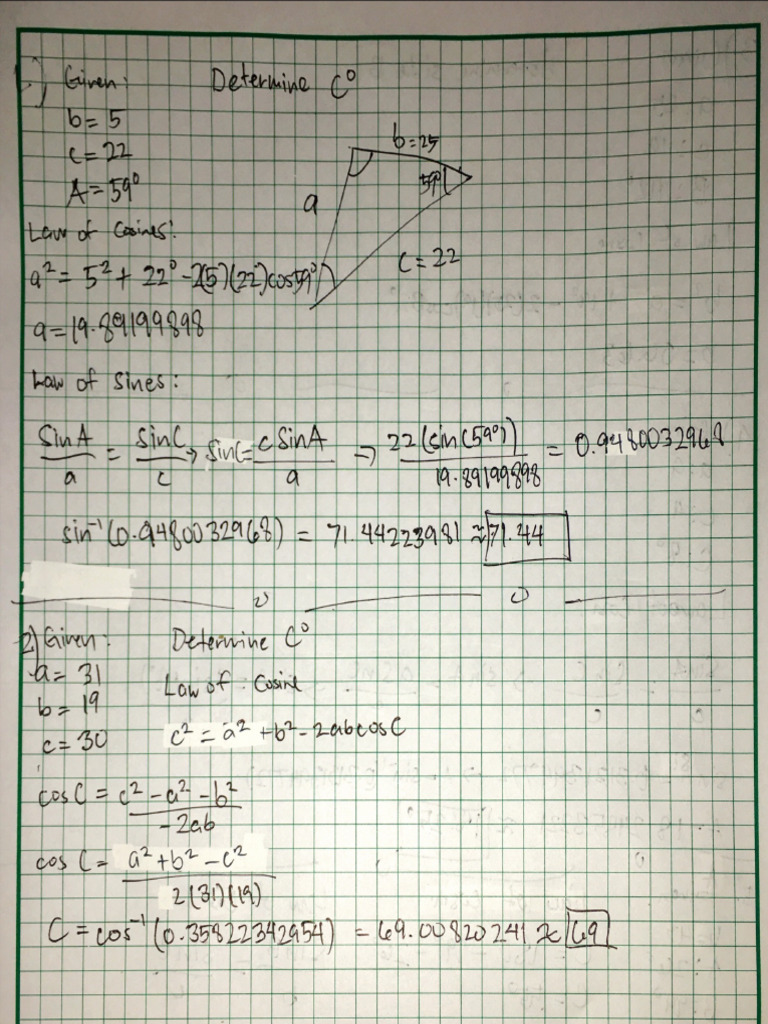 1) Given: Determine C°
b = 5
c = 22
A = 59°
b = 25
59°
a
c = 22
Law of Cosines:
a² = 5² + 22° - 2(5)(22)cos59°
a = 19.89199898
Law of Sines:
Sin A / a = Sin C / c → Sin C = c Sin A / a → 22(sin(59°)) / 19.89199898 = 0.9480032968
sin⁻¹(0.9480032968) = 71.44223981 ≈ 71.44
2) Given: Determine C°
a = 31
Law of Cosine
b = 19
c = 30 c² = a² + b² - 2abcosC
cos C = c² - a² - b² / -2ab
cos C = a² + b² - c² / 2(31)(19)
C = cos⁻¹(0.35822342954) = 69.00820241 ≈ 69